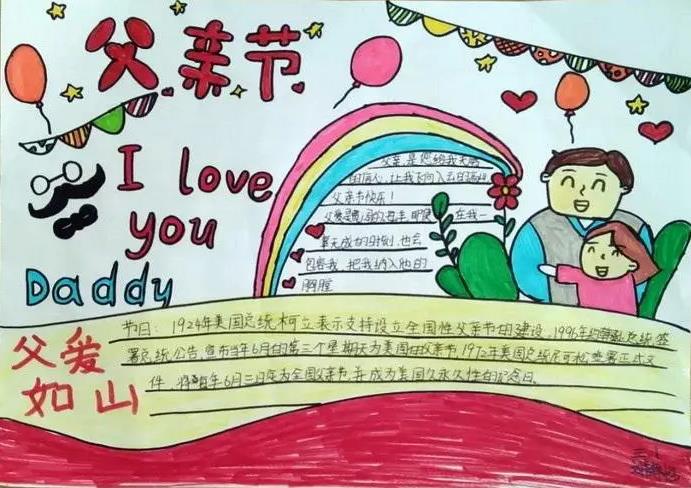 父亲节
I love
you
Daddy
父亲是您给我大鹏
的信心,让我飞向人
父亲节快乐!
在我一
事无成的时刻,也会
包容我,把我纳入他的
胸膛
节日:1924年美国总统柯立表示支持设立全国性父亲节的建设,1996年约翰逊总统签
署总统公告,宣布当年6月的第三个星期天为美国的父亲节,1972年美国总统尼可松签署正式文
件,将每年6月三日定为全国父亲节,并成为美国永久性的纪念日。
父爱
如山